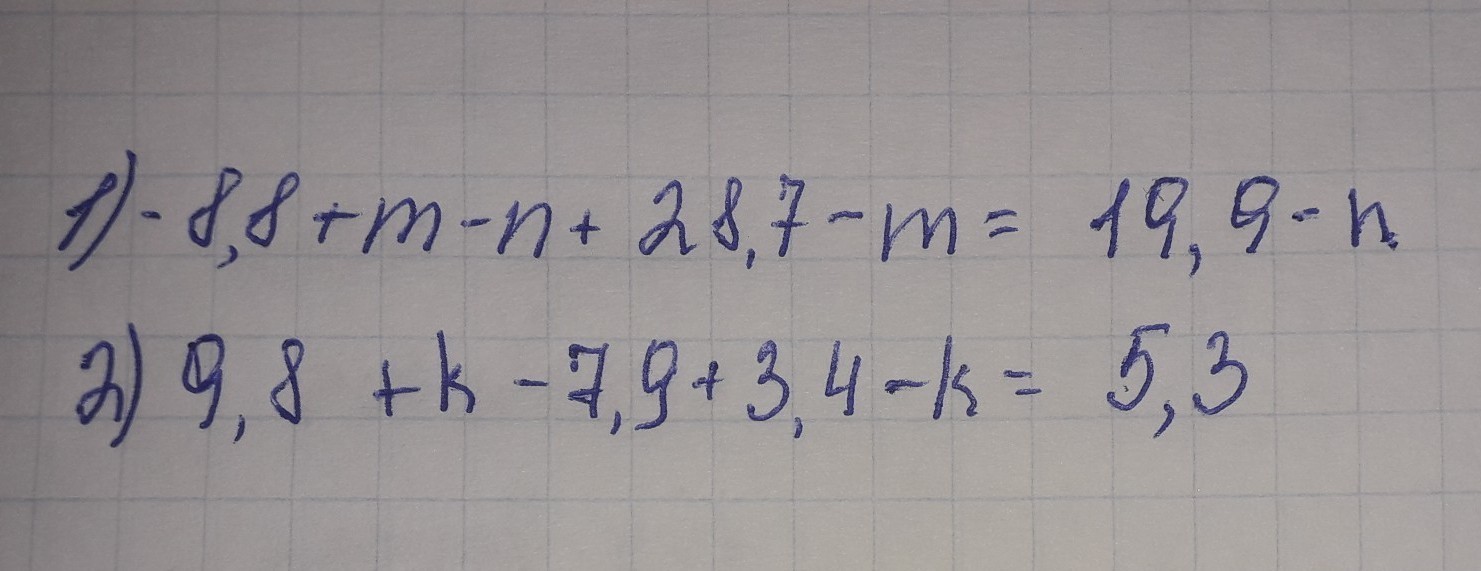 1) - 8,8 + m - n + 28,7 - m = 19,9 - n
2) 9,8 + k - 7,9 + 3,4 - k = 5,3